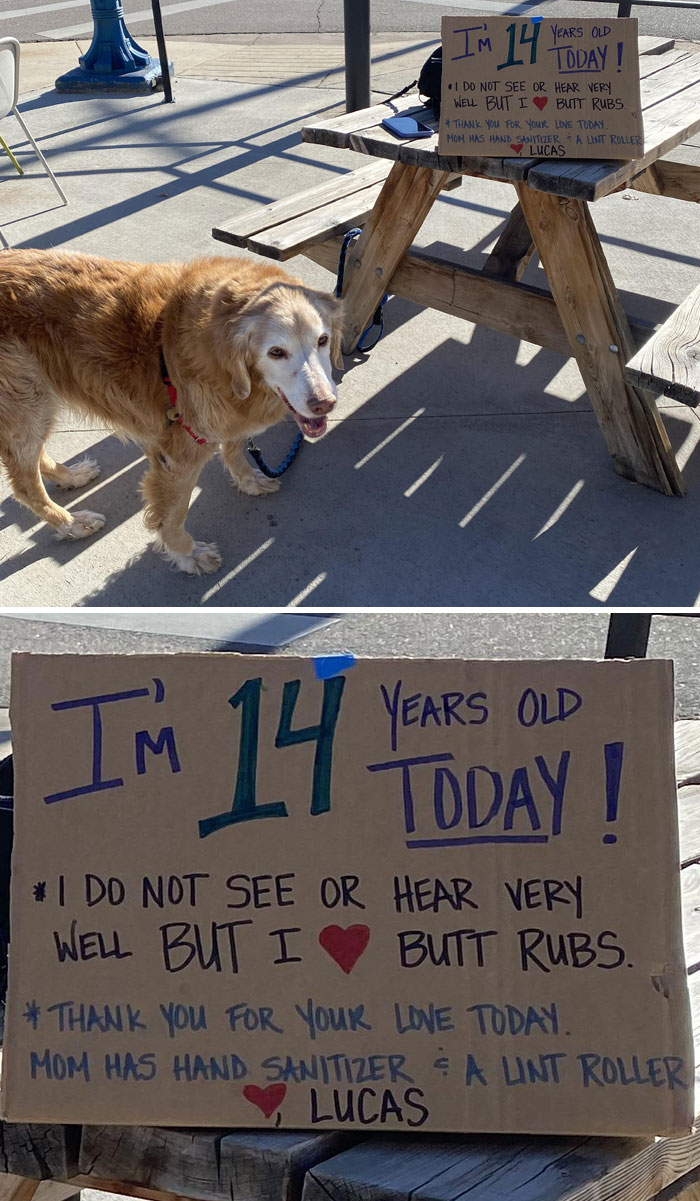 I'M 14 YEARS OLD
TODAY!
*I DO NOT SEE OR HEAR VERY
WELL BUT I ♥ BUTT RUBS.
*THANK YOU FOR YOUR LOVE TODAY.
MOM HAS HAND SANITIZER & A LINT ROLLER
♥, LUCAS
I'M 14 YEARS OLD
TODAY!
*I DO NOT SEE OR HEAR VERY
WELL BUT I ♥ BUTT RUBS.
*THANK YOU FOR YOUR LOVE TODAY.
MOM HAS HAND SANITIZER & A LINT ROLLER
♥, LUCAS